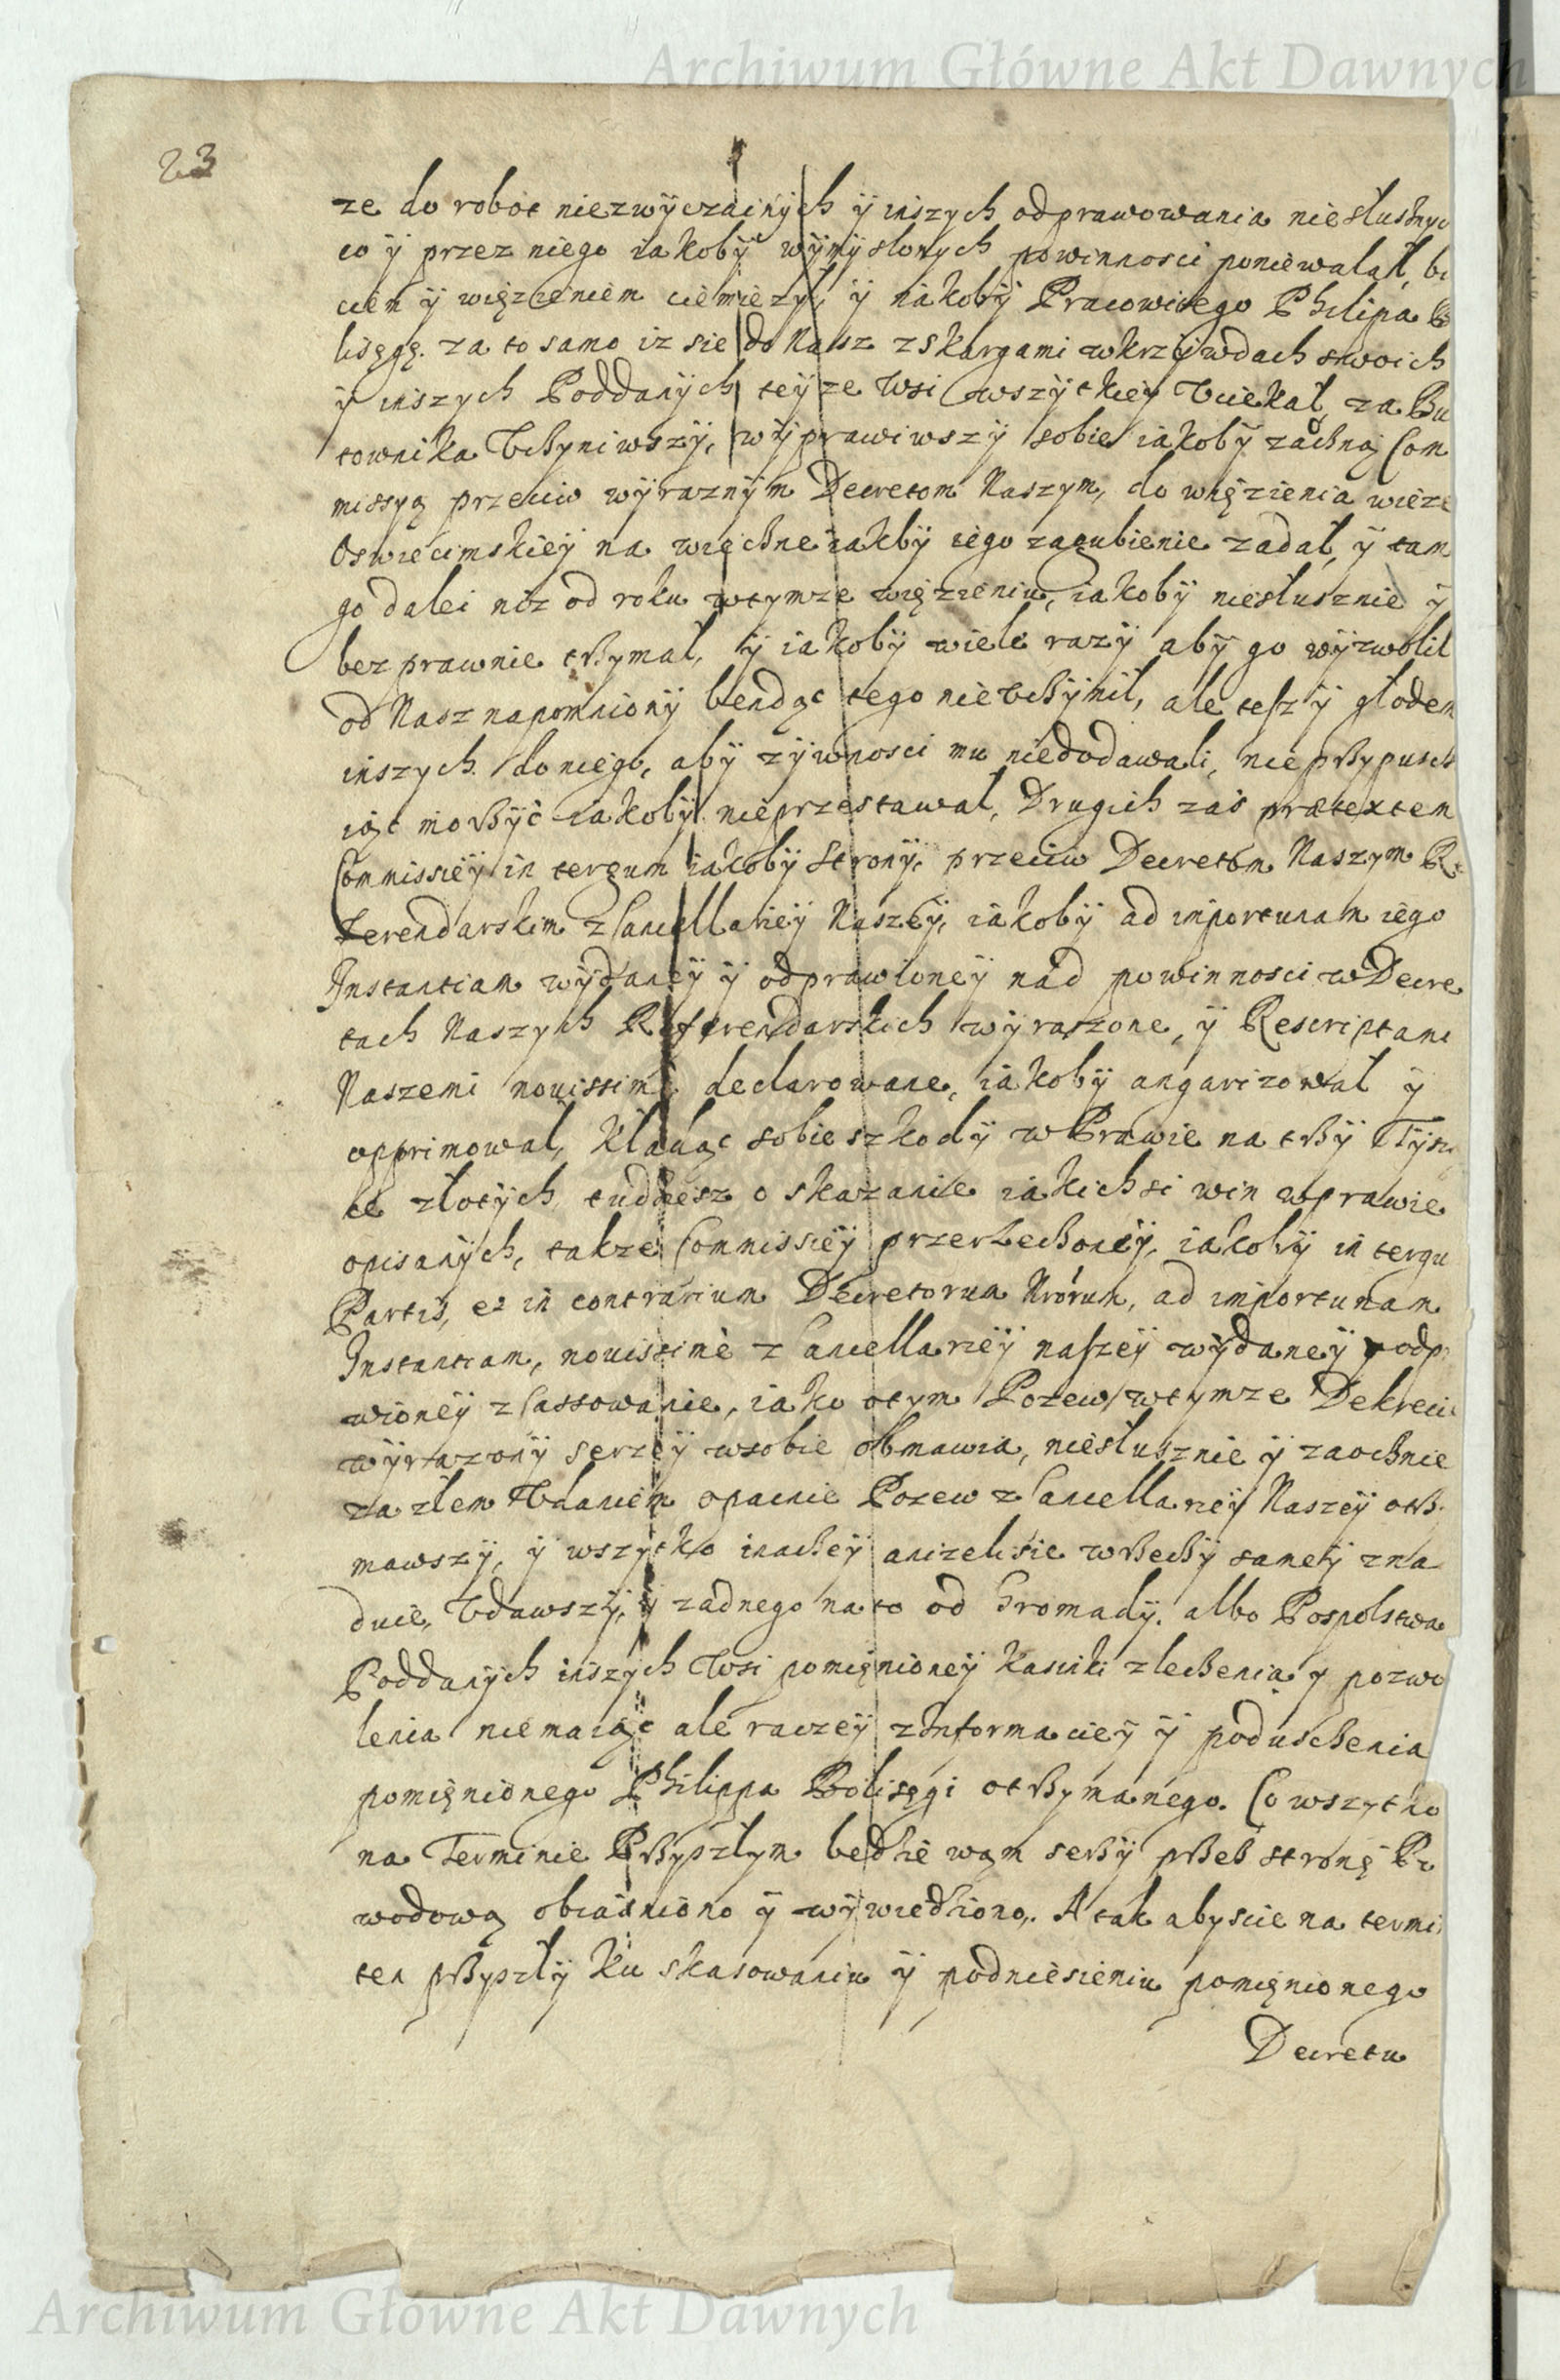 Archiwum Główne Akt Dawnych
23
ze do robot niezwÿczainÿch ÿ inszych odprawowania niesłusznyc
co ÿ przez niego iakobÿ wÿmÿslonych powinnosci poniewalał, bi
ciem ÿ więzieniem ciemięzył, ÿ iakobÿ Pracowitego Philipa B
lisęgę. za to samo iz sie do Nasz z skargami w krzÿwdach swoich
ÿ inszych Poddanÿch teÿze Wsi wszÿtkieÿ Vciekał, za Bu
townika Vczyniwszÿ, wÿprawiwszÿ sobie iakobÿ zaoczną Com
missyą przeciw wÿraznÿm Decretom Naszym, do więzienia wieze
Oswiecimskieÿ na wieczne iakbÿ iego zagubienie zadał, ÿ tam
go dalei niz od roku wtymze więzieniu, iakobÿ niesłusznie ÿ
bezprawnie trzymał, ÿ iakobÿ wiele razÿ abÿ go wÿzwolił
od Nasz napomnionÿ bendąc tego nie Vczÿnił, ale teszÿ głodem
inszych do niego, abÿ zÿwnosci mu niedodawali, nie przypuscz
iąc morzÿć iakobÿ nieprzestawał, Drugich zaś prætextem
Commissieÿ in tergum iakobÿ Stronÿ, przeciw Decretom Naszym Re
ferendarskim z Cancellarieÿ Naszeÿ, iakobÿ ad importunam iego
Instantiam wÿdaneÿ ÿ odprawioneÿ nad powinnosci w Decre
tach Naszych Referendarskich wÿrazone, ÿ Rescriptami
Naszemi nouissime declarowane, iakobÿ angarizował ÿ
opprimował, kładąc sobie szkodÿ w Prawie na trzÿ Tÿsi
ce złotÿch, tudziesz o skazanie iakichsi win w prawie
opisanÿch, takze Commissieÿ przerzeczoneÿ, iakobÿ in tergu
Partis, et in contrarium Decretorum Nrórum, ad importunam
Instantiam, nouissimè z Cancellarieÿ naszeÿ wÿdaneÿ ÿ odpr
wioneÿ z Cassowanie, iako o tym Pozew w tymze Dekreci
wÿrazonÿ serzeÿ w sobie obmawia, niesłusznie ÿ zaocznie
za złem Vdaniem opacnie Pozew z Cancellarieÿ Naszeÿ otrz
mawszÿ, ÿ wszytko inaczeÿ anizeli sie w rzeczÿ sameÿ zna
duie, Vdawszÿ, ÿ zadnego na to od Gromadÿ, albo Pospolstwa
Poddanÿch inszych Wsi pomięnioneÿ Kasinki zleczenia ÿ pozwo
lenia niemaiąc ale raczeÿ z Informacieÿ ÿ poduszczenia
pomięnionego Philippa Bolisęgi otrzymanego. Co wszytko
na Terminie Przyszłym będzie wąm serzÿ przez stronę Po
wodową obiaśniono ÿ wÿwiedziono. A tak abyscie na termi
ten przyszłÿ ku skasowaniu ÿ podniesieniu pomięnionego
Decretu
Archiwum Główne Akt Dawnych